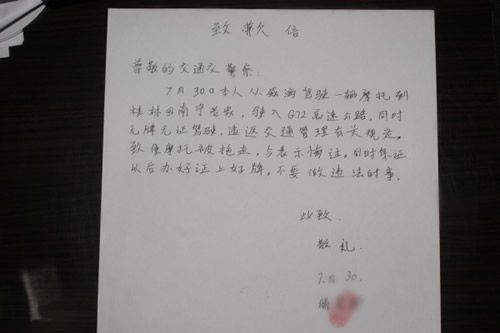 致歉信
尊敬的交通交警察.
7月30日本人从威海驾驶一辆摩托到
桂林回南宁老家，驶入G72高速公路，同时
无牌无证驾驶，违返交通管理有关规定。
致使摩托被拖走，今表示悔过。同时保证
从后办好证上好牌。不要做违法的事.
此致.
敬礼.
7月30.